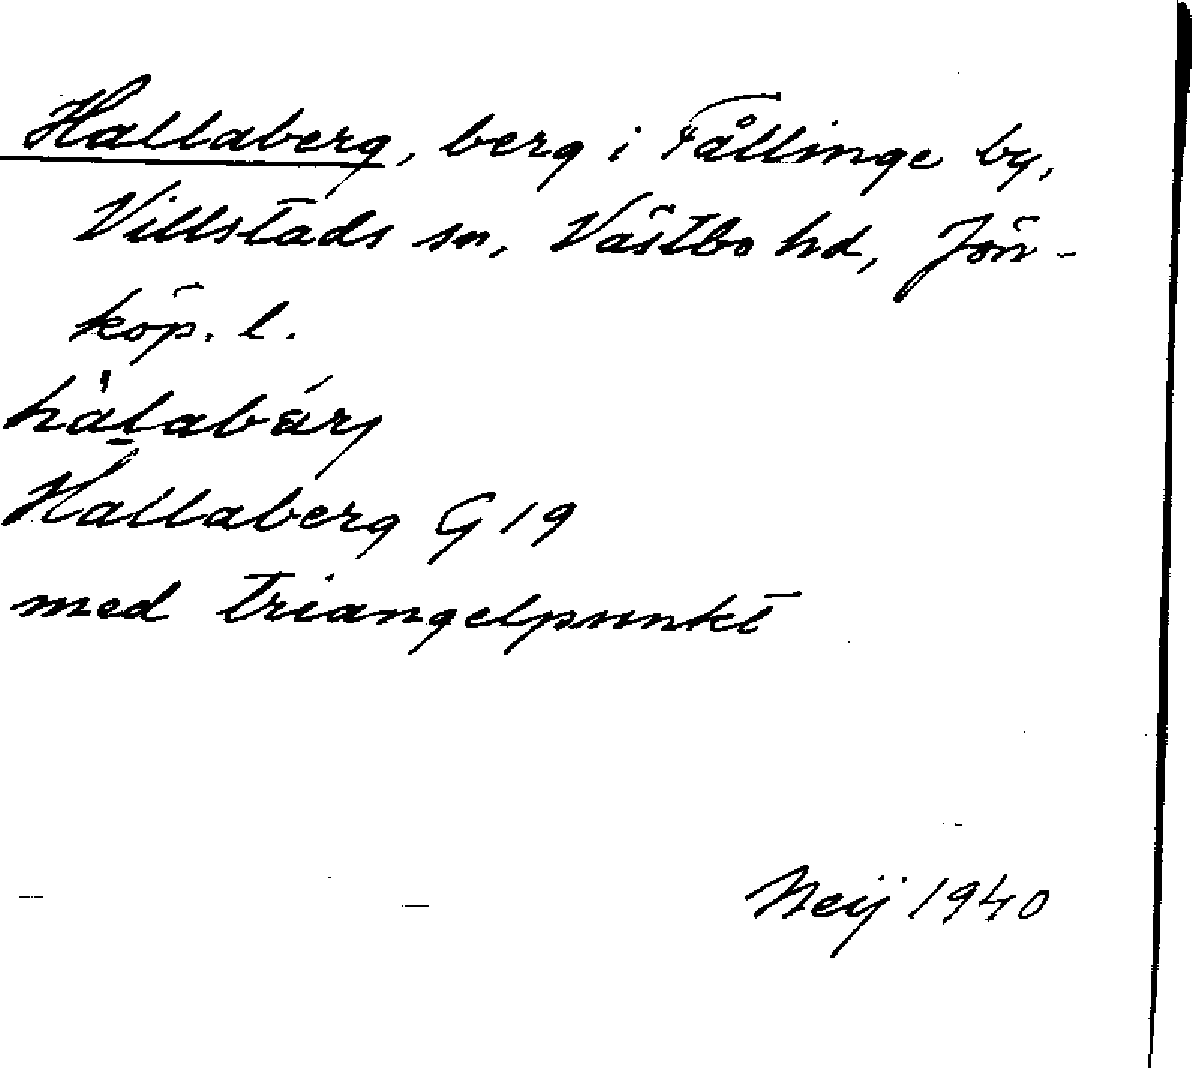 Hallaberg, berg i Fållinge by,
Villstads sn, Västbo hd, Jön-
köp. l.
Hallaberg G 19
med triangelpunkt
Neij 1940